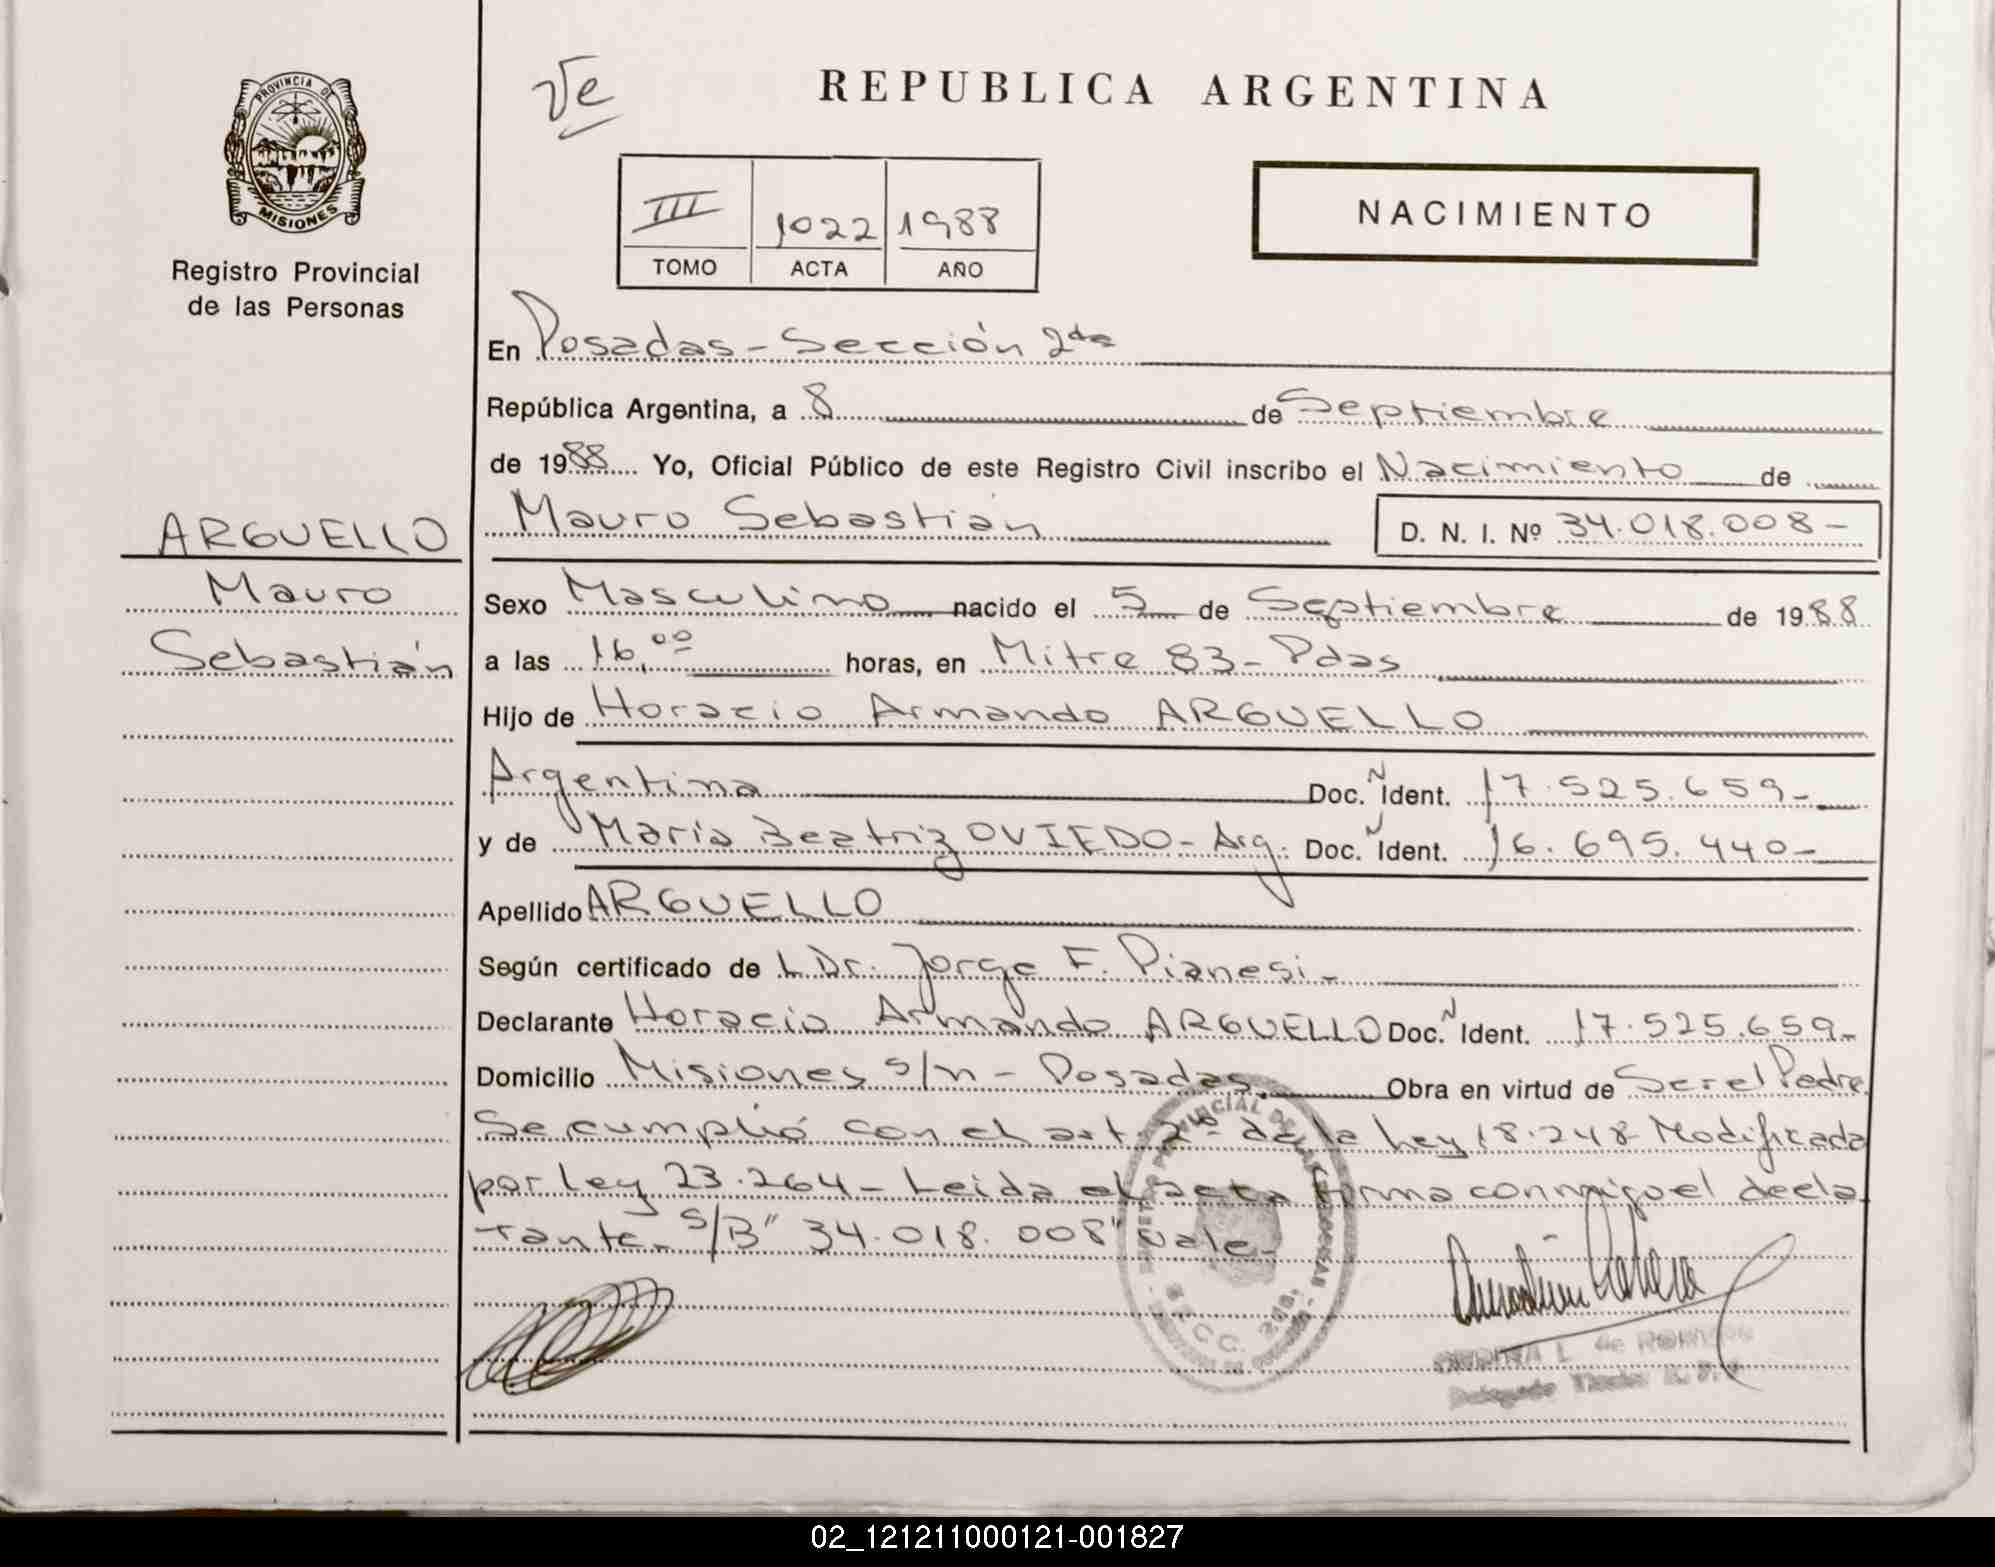 PROVINCIA DE
MISIONES
Registro Provincial
de las Personas
ARGUELLO
Mauro
Sebastián
REPUBLICA ARGENTINA
III 1022 1988
TOMO ACTA AÑO
NACIMIENTO
En Posadas - Sección 2da
República Argentina, a 8 de Septiembre
de 1988 Yo, Oficial Público de este Registro Civil inscribo el Nacimiento de
Mauro Sebastián D. N. I. Nº 34.018.008 -
Sexo Masculino nacido el 5 de Septiembre de 1988
a las 16,00 horas, en Mitre 83 - Pdas
Hijo de Horacio Armando ARGUELLO
Argentina Doc. N Ident. 17.525.659 -
y de María Beatriz OVIEDO - Arg. Doc. N Ident. 16.695.440 -
Apellido ARGUELLO
Según certificado de L Dr. Jorge F. Pianesi -
Declarante Horacio Armando ARGUELLO Doc. N Ident. 17.525.659 -
Domicilio Misiones s/n - Posadas. Obra en virtud de Ser el Padre
Se cumplió con el art. 2do de la Ley 18.248 Modificada
por Ley 23.264 - Leída el acta firma conmigo el decla-
rante. S/B "34.018.008" vale -
02_121211000121-001827